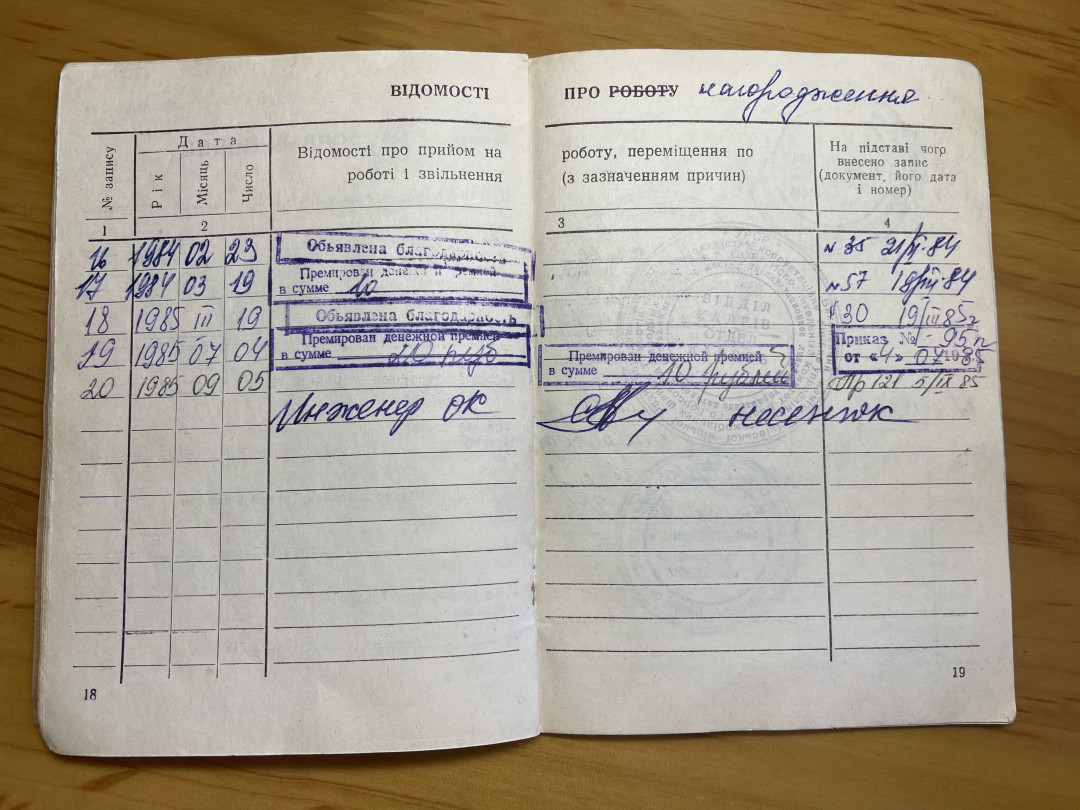 ВІДОМОСТІ
ПРО РОБОТУ нагородження
№ запису
Дата
Рік
Місяць
Число
Відомості про прийом на
роботі і звільнення
роботу, переміщення по
(з зазначенням причин)
На підставі чого
внесено запис
(документ, його дата
і номер)
1
2
3
4
16 1984 02 23 Объявлена благодарность № 35 21/II-84
17 1984 03 19 Премирован денежной премией
в сумме 10 № 57 18/III-84
18 1985 III 19 Объявлена благодарность 30 19/III 85г
19 1985 07 04 Премирован денежной премией
в сумме 20 руб Приказ № 95
от «4» 07 1985
20 1985 09 05 Премирован денежной премией
в сумме 10 рублей Пр 121 5/IX 85
Инженер ОК
ВІДДІЛ
КАДРІВ
ОТДЕЛ
18
19